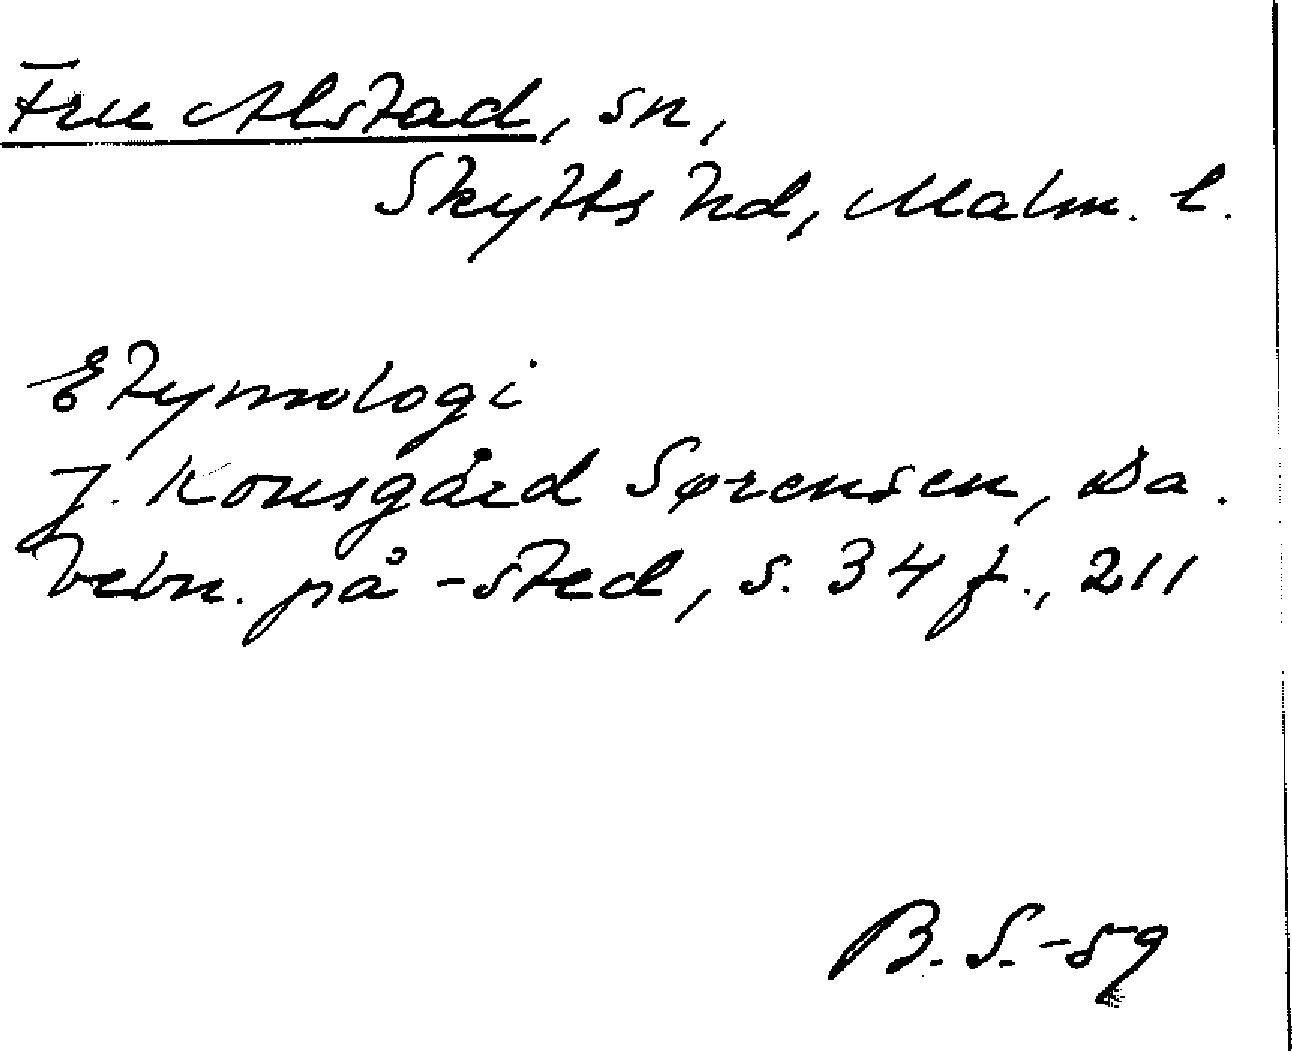 Fru Alstad, sn,
Skytts hd, Malm. l.
Etymologi
J. Kousgård Sørensen, Da.
bebn. på -sted, s. 34 f., 211
B. S. -59